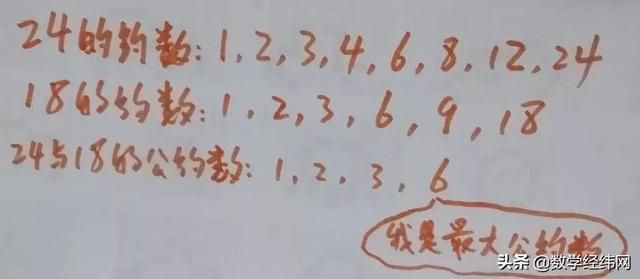 24的约数:1,2,3,4,6,8,12,24
18的约数:1,2,3,6,9,18
24与18的公约数:1,2,3,6
我是最大公约数
头条 @数学经纬网